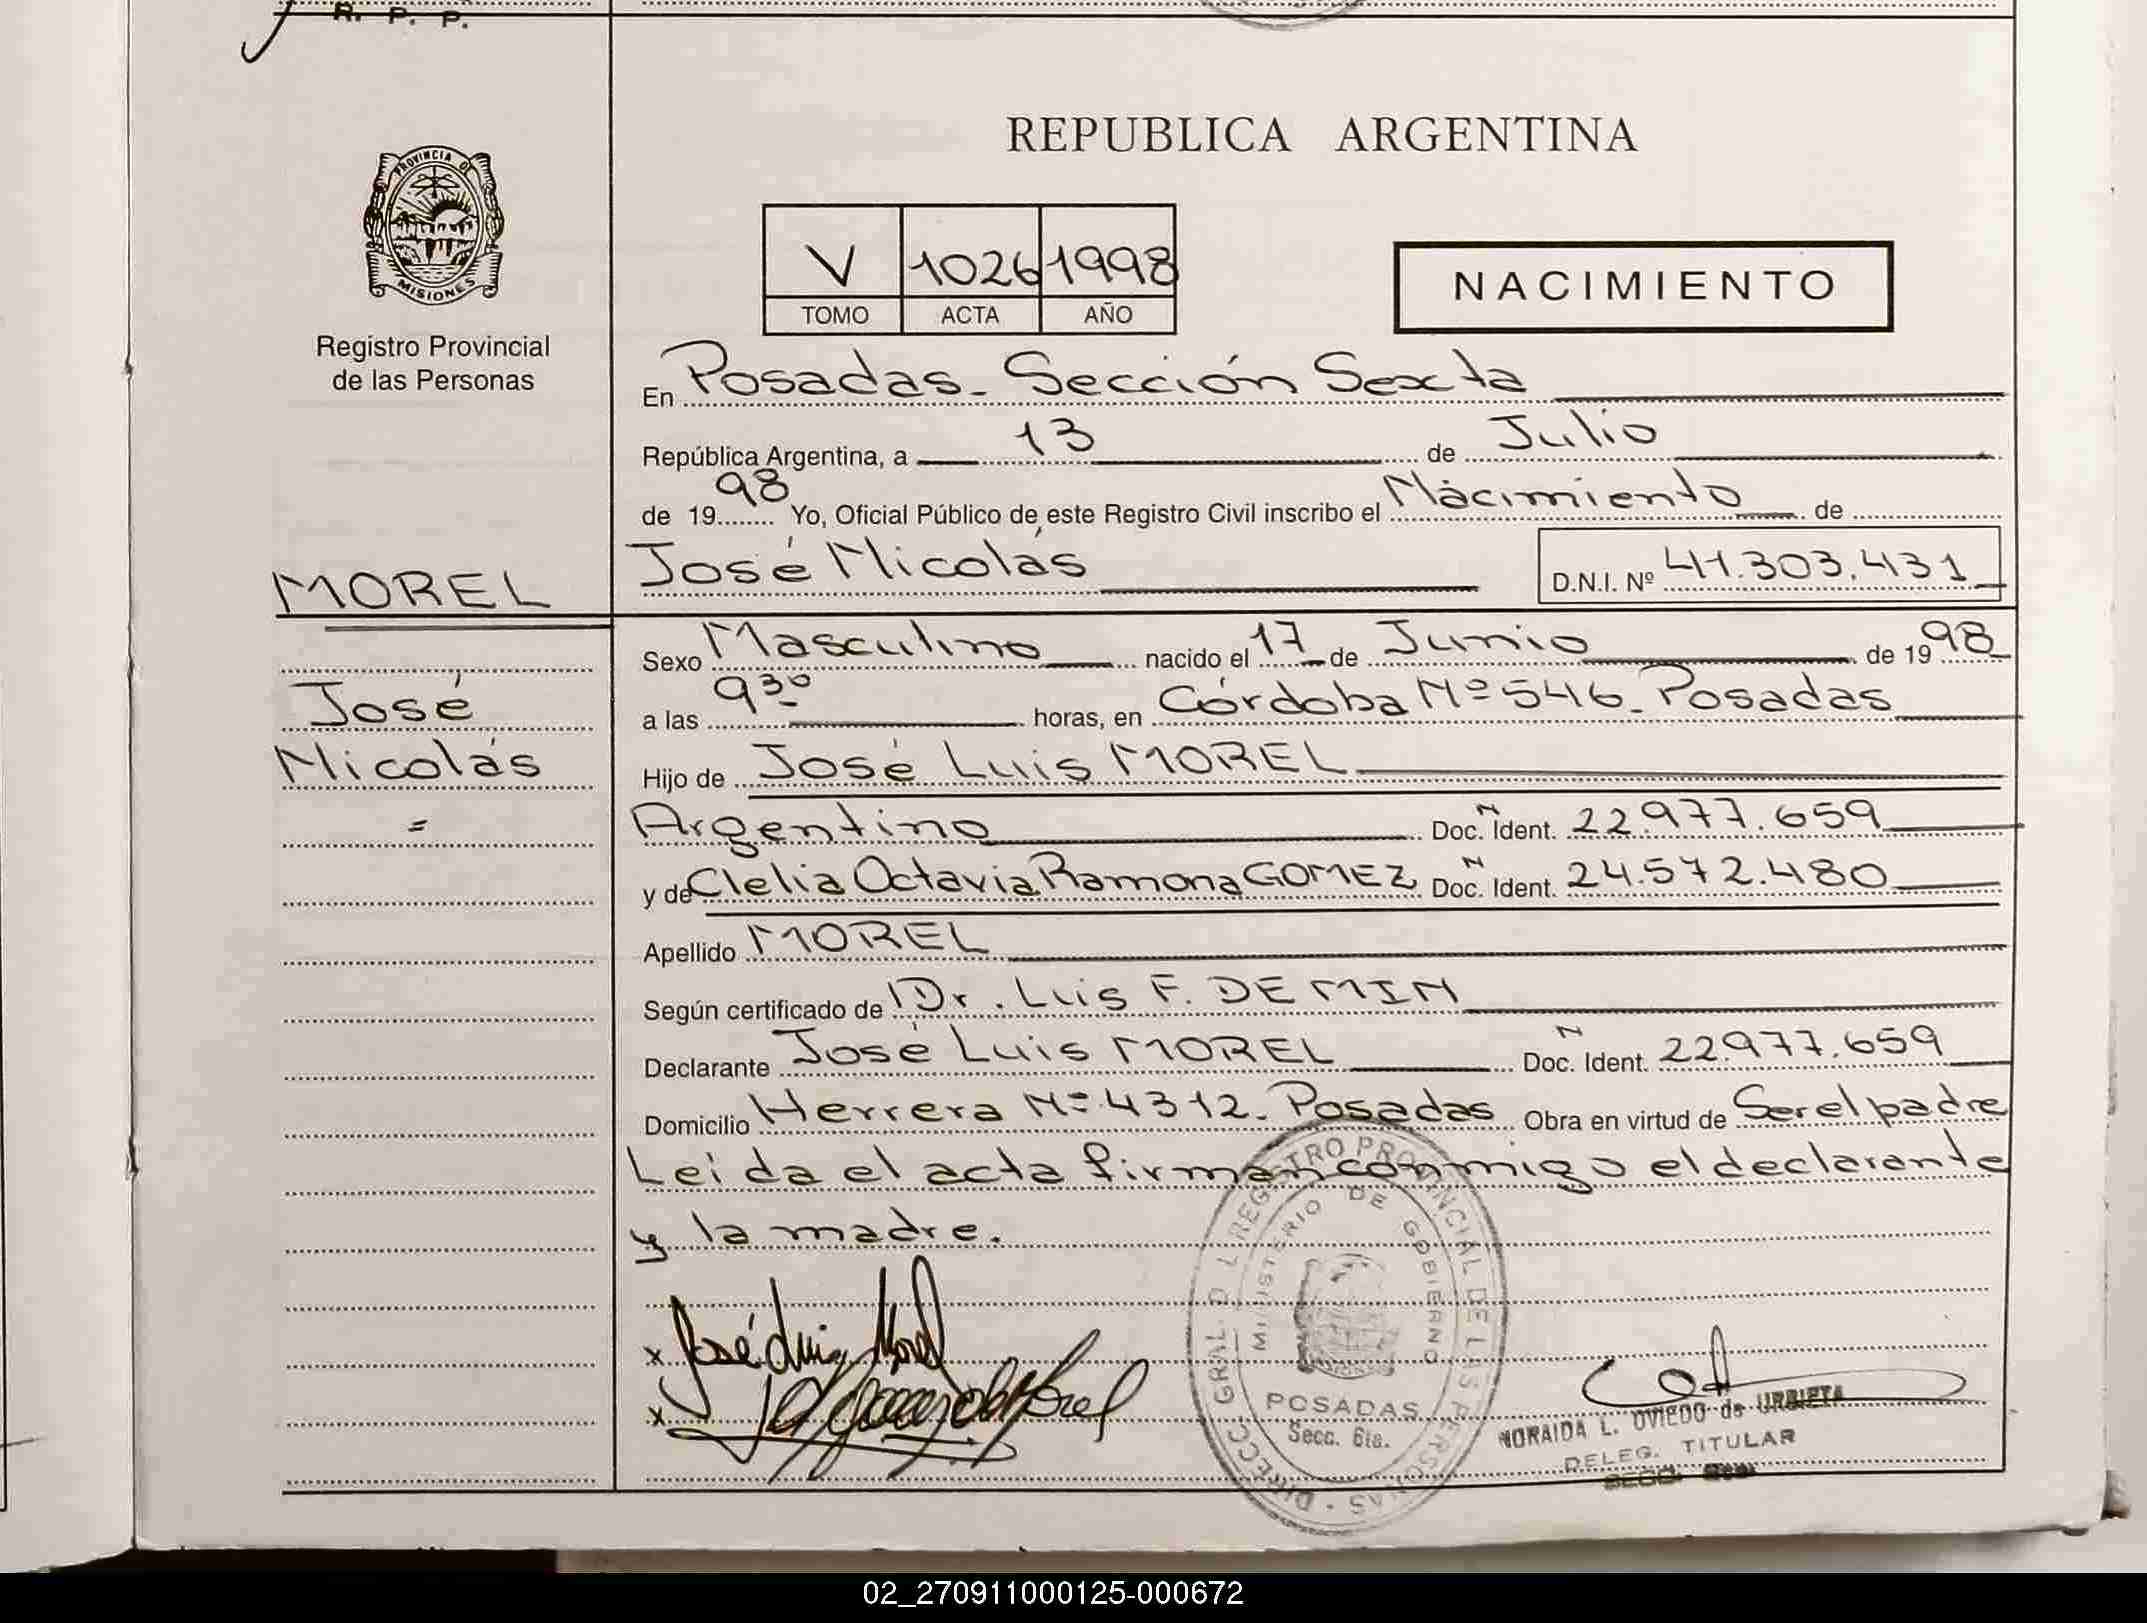 R. P. P.
PROVINCIA DE
MISIONES
Registro Provincial
de las Personas
REPUBLICA ARGENTINA
V 1026 1998
TOMO ACTA AÑO
NACIMIENTO
En Posadas - Sección Sexta
República Argentina, a 13 de Julio
de 1998 Yo, Oficial Público de este Registro Civil inscribo el Nacimiento de
MOREL José Nicolás D.N.I. Nº 41.303.431
Sexo Masculino nacido el 17 de Junio de 1998
José
a las 9³⁰ horas, en Córdoba Nº 546 - Posadas
Nicolás
Hijo de José Luis MOREL
=
Argentino Doc. N Ident. 22.977.659
y de Clelia Octavia Ramona GOMEZ Doc. N Ident. 24.572.480
Apellido MOREL
Según certificado de Dr. Luis F. DE MIN
Declarante José Luis MOREL Doc. N Ident. 22.977.659
Domicilio Herrera Nº 4312 - Posadas Obra en virtud de Ser el padre
Leida el acta firman conmigo el declarante
y la madre.
x José Luis Morel
x
DIRECC. GRAL. D L REGISTRO PROVINCIAL DE LAS PERSONAS
MINISTERIO DE GOBIERNO
POSADAS
Secc. 6ta.
NORAIDA L. OVIEDO de URBIETA
DELEG. TITULAR
02_270911000125-000672